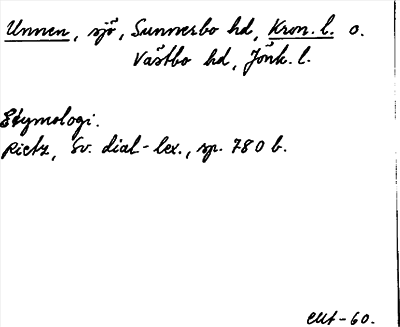 Unnen, sjö, Sunnerbo hd, Kron. l. o.
Västbo hd, Jönk. l.
Etymologi.
Rietz, Sv. dial-lex., sp. 780 b.
-60.